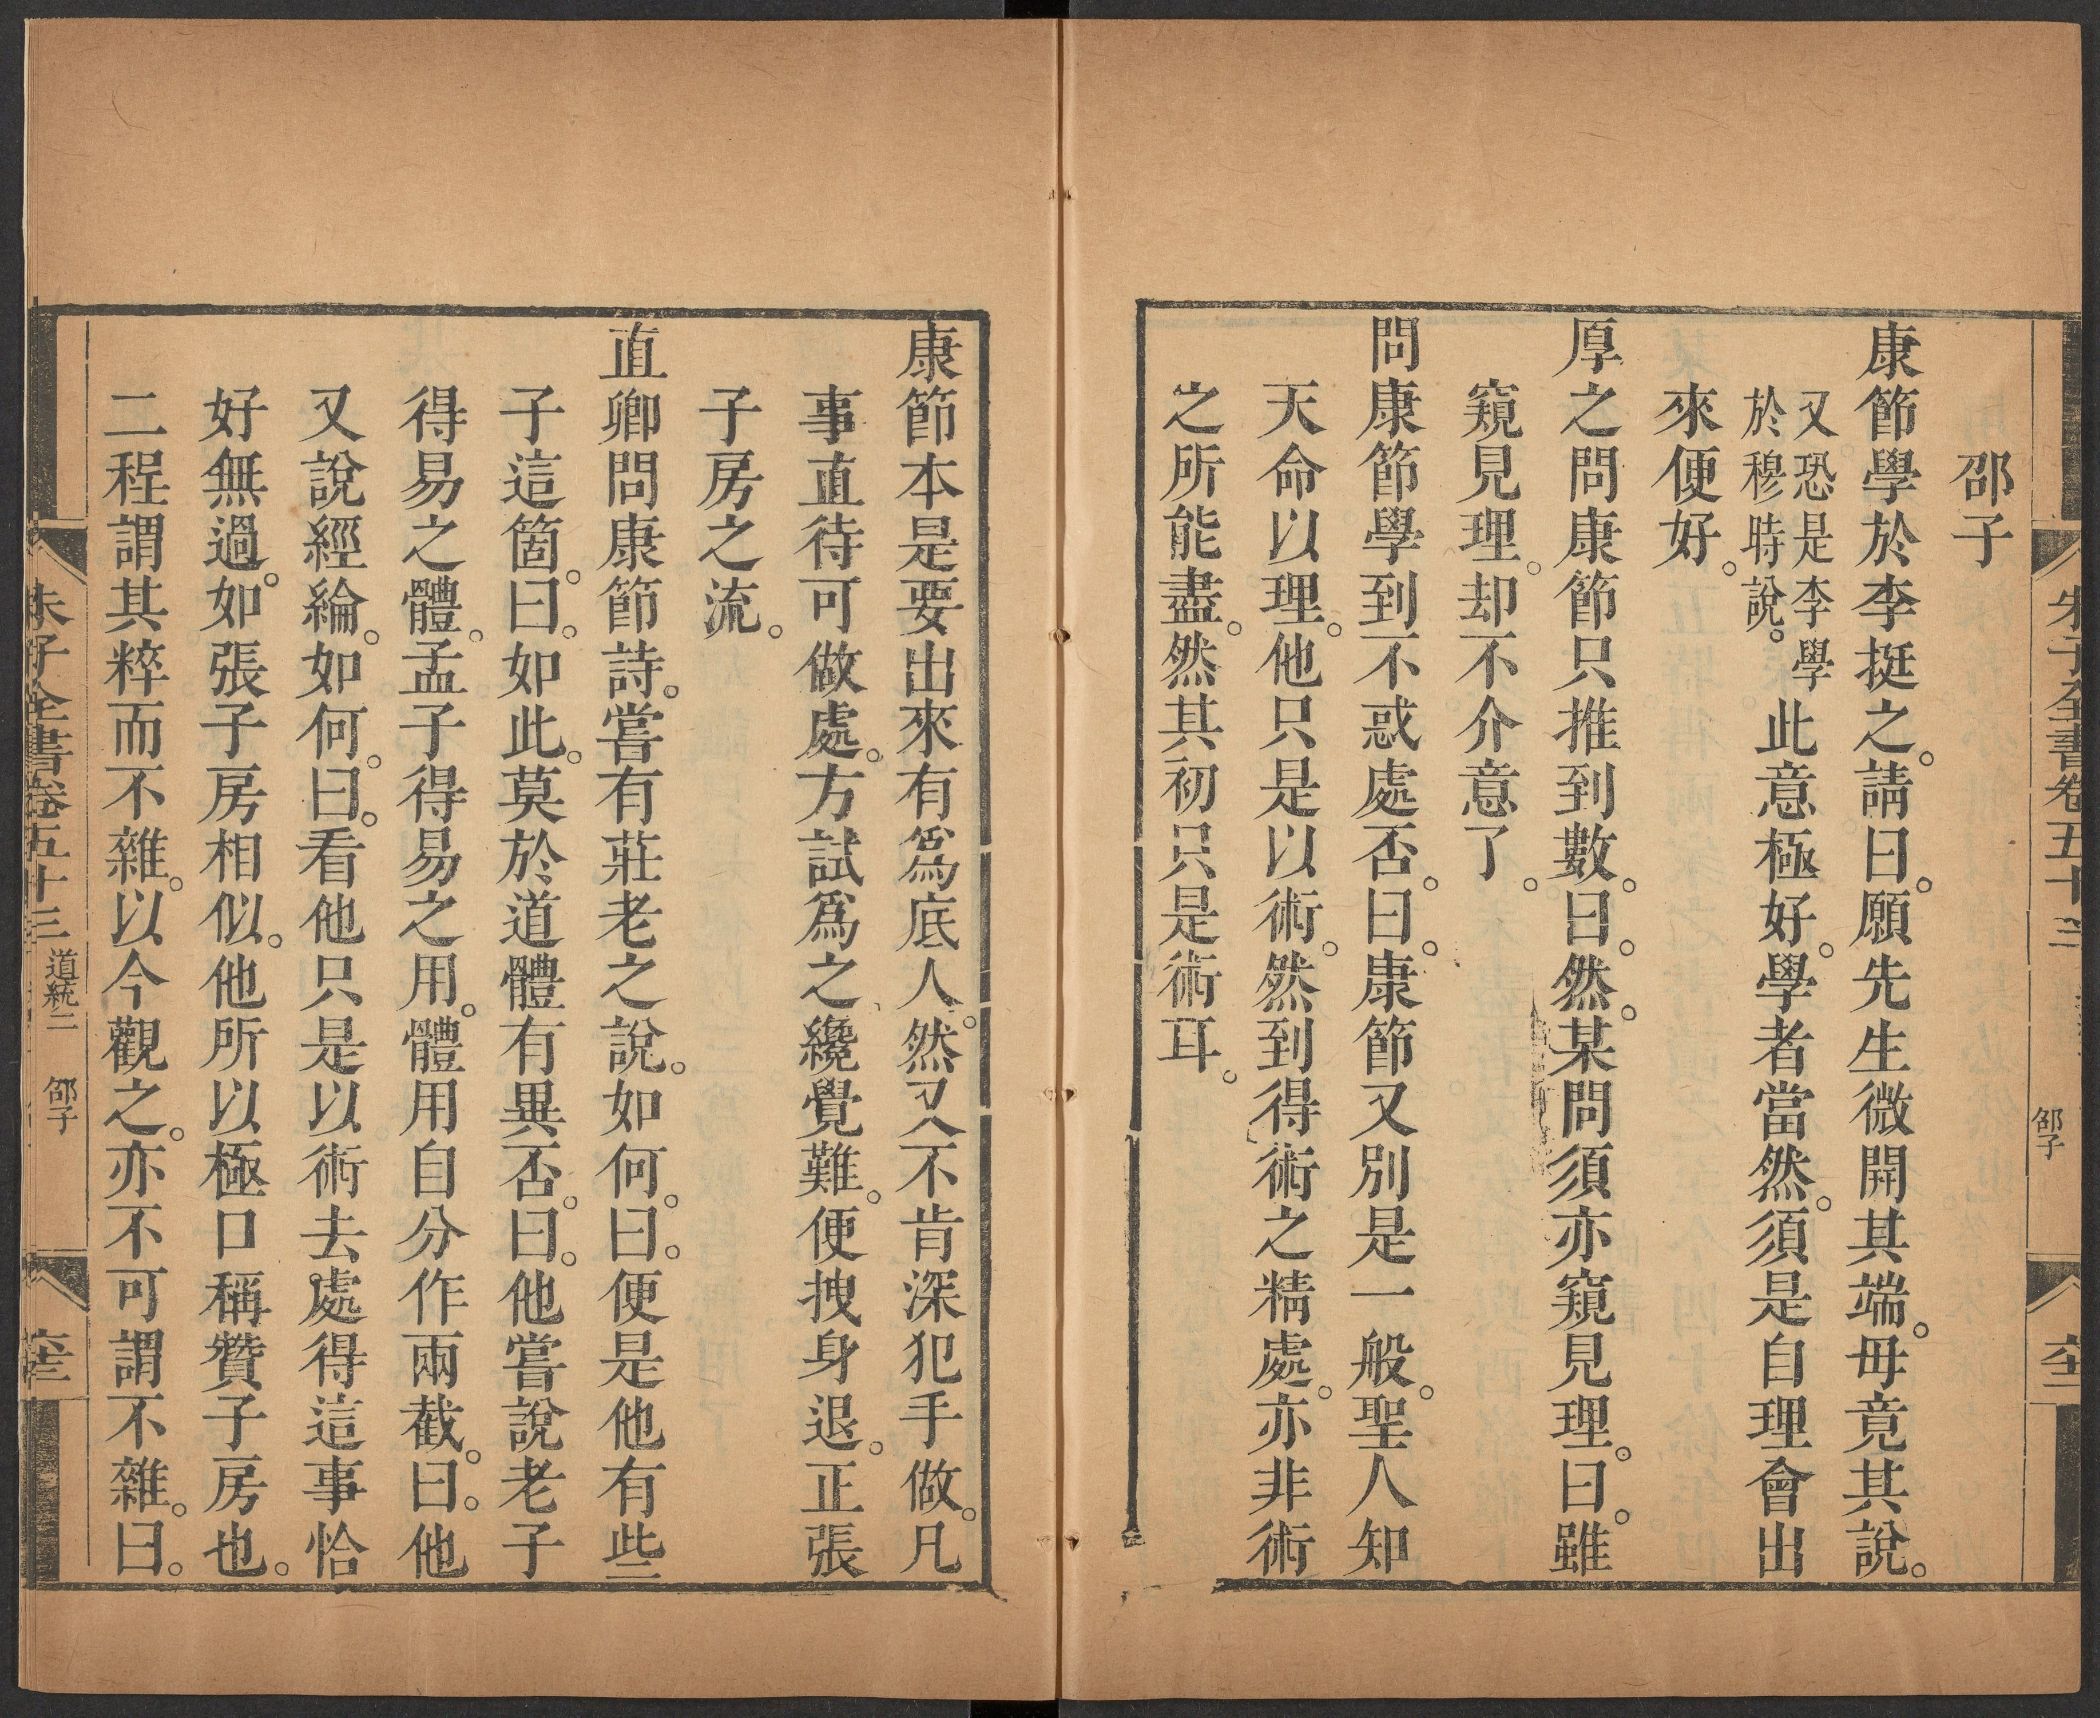 邵子
康節學於李挺之。請曰。願先生微開其端。毋竟其說。
又恐是李學
於穆時說。
此意極好。學者當然。須是自理會出
來便好。
厚之問康節只推到數。曰。然。某問須亦窺見理。曰。雖
窺見理。却不介意了。
問康節學到不惑處否。曰。康節又別是一般。聖人知
天命以理。他只是以術。然到得術之精處。亦非術
之所能盡。然其初只是術耳。
朱子全書卷五十三
邵子
康節本是要出來有爲底人。然又不肯深犯手做。凡
事直待可做處。方試爲之。纔覺難。便拽身退。正張
子房之流。
直卿問康節詩。嘗有莊老之說。如何。曰。便是他有些
子這箇。曰。如此。莫於道體有異否。曰。他嘗說老子
得易之體。孟子得易之用。體用自分作兩截。曰。他
又說經綸。如何。曰。看他只是以術去處得這事恰
好無過。如張子房相似。他所以極口稱贊子房也。
二程謂其粹而不雜。以今觀之。亦不可謂不雜。曰。
朱子全書卷五十三
道統二
邵子